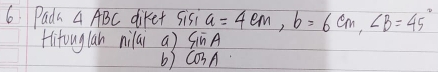 6. Pada Δ ABC diket sisi a = 4 cm, b = 6 cm, ∠B = 45°
Hitunglah nilai a) Sin A
b) Cos A.